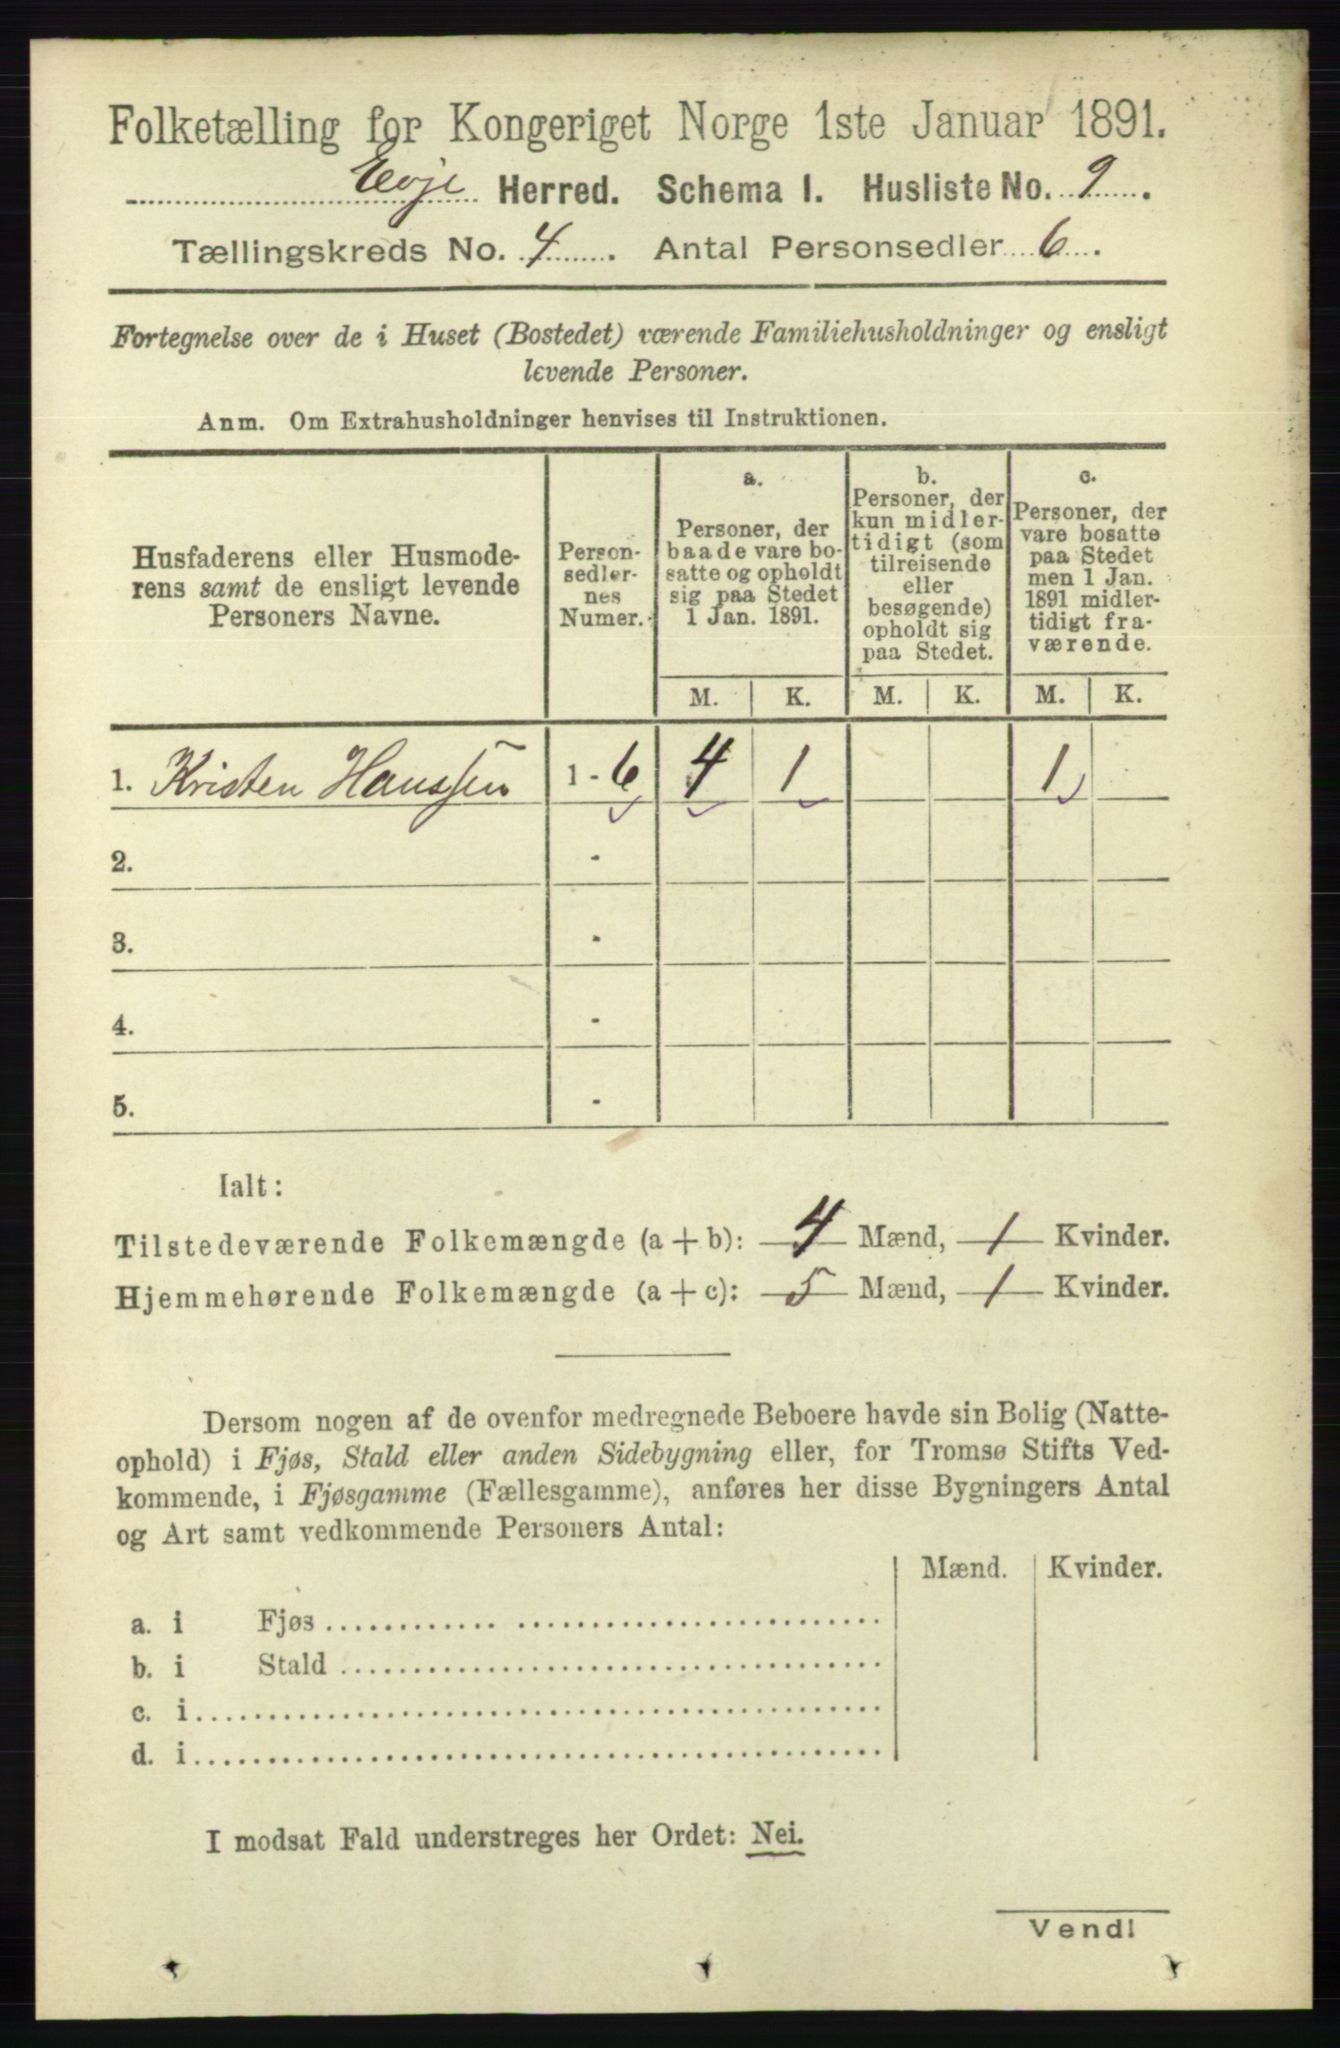 Folketælling for Kongeriget Norge 1ste Januar 1891.
Evje Herred. Schema I. Husliste No. 9.
Tællingskreds No. 4. Antal Personsedler 6.
Fortegnelse over de i Huset (Bostedet) værende Familiehusholdninger og ensligt
levende Personer.
Anm. Om Extrahusholdninger henvises til Instruktionen.
Husfaderens eller Husmode-
rens samt de ensligt levende
Personers Navne.
Person-
sedler-
nes
Numer.
a.
Personer, der
baade vare bo-
satte og opholdt
sig paa Stedet
1 Jan. 1891.
b.
Personer, der
kun midler-
tidigt (som
tilreisende
eller
besøgende)
opholdt sig
paa Stedet.
c.
Personer, der
vare bosatte
paa Stedet
men 1 Jan.
1891 midler-
tidigt fra-
værende.
M. K. M. K. M. K.
1. Kristen Hanssen 1 - 6 4 1 1
2. -
3. -
4. -
5. -
Ialt:
Tilstedeværende Folkemængde (a + b): 4 Mænd, 1 Kvinder.
Hjemmehørende Folkemængde (a + c): 5 Mænd, 1 Kvinder.
Dersom nogen af de ovenfor medregnede Beboere havde sin Bolig (Natte-
ophold) i Fjøs, Stald eller anden Sidebygning eller, for Tromsø Stifts Ved-
kommende, i Fjøsgamme (Fællesgamme), anføres her disse Bygningers Antal
og Art samt vedkommende Personers Antal:
Mænd. Kvinder.
a. i Fjøs
b. i Stald
c. i
d. i
I modsat Fald understreges her Ordet: Nei.
Vend!